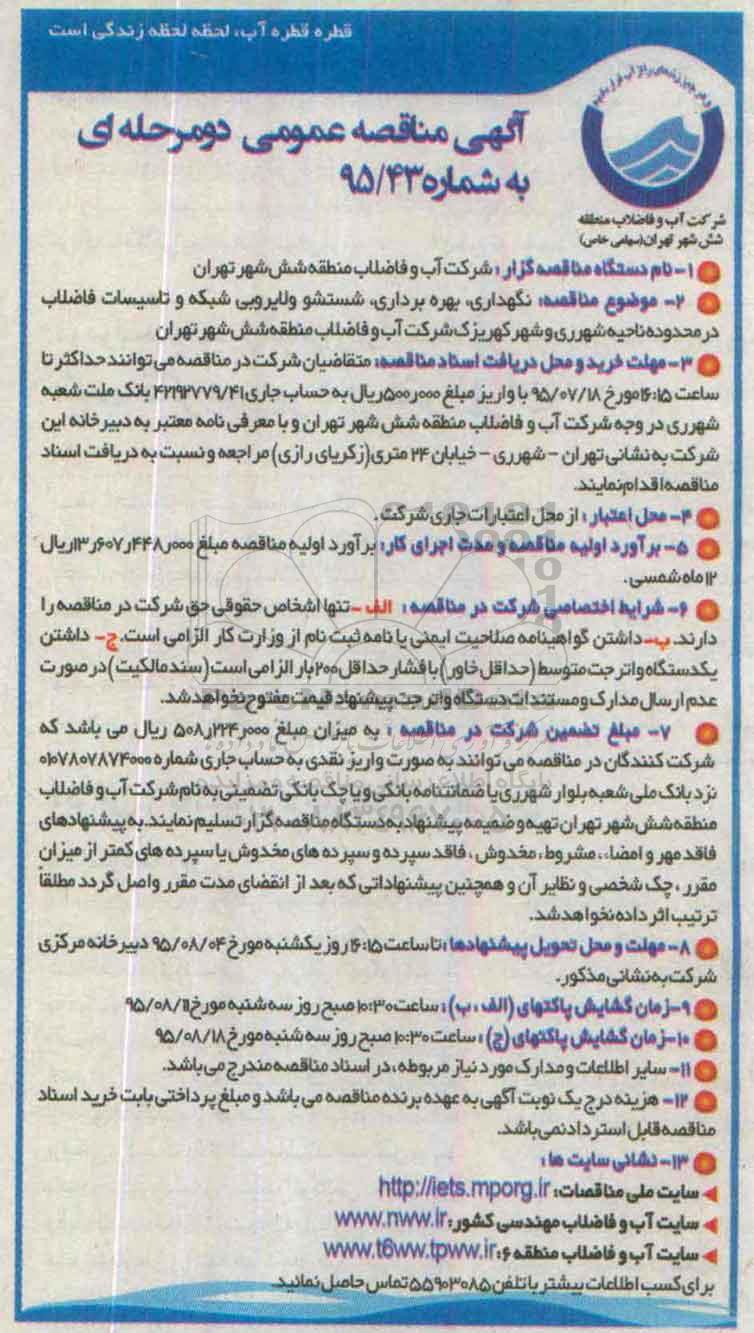 قطره قطره آب، لحظه لحظه زندگی است
آگهی مناقصه عمومی دومرحله ای
به شماره ۹۵/۴۳
شرکت آب و فاضلاب منطقه
شش شهر تهران (سهامی خاص)
۱- نام دستگاه مناقصه گزار: شرکت آب و فاضلاب منطقه شش شهر تهران
۲- موضوع مناقصه: نگهداری، بهره برداری، شستشو ولایروبی شبکه و تاسیسات فاضلاب
در محدوده ناحیه شهرری و شهر کهریزک شرکت آب و فاضلاب منطقه شش شهر تهران
۳- مهلت خرید و محل دریافت اسناد مناقصه: متقاضیان شرکت در مناقصه می توانند حداکثر تا
ساعت ۱۶:۱۵ مورخ ۹۵/۰۷/۱۸ با واریز مبلغ ۵۰۰ر۰۰۰ ریال به حساب جاری ۴۲۱۹۲۷۷۹/۴۱ بانک ملت شعبه
شهرری در وجه شرکت آب و فاضلاب منطقه شش شهر تهران و با معرفی نامه معتبر به دبیرخانه این
شرکت به نشانی تهران - شهرری - خیابان ۲۴ متری (زکریای رازی) مراجعه و نسبت به دریافت اسناد
مناقصه اقدام نمایند.
۴- محل اعتبار: از محل اعتبارات جاری شرکت.
۵- برآورد اولیه مناقصه و مدت اجرای کار: برآورد اولیه مناقصه مبلغ ۱۳ر۶۰۷ر۴۴۸ر۰۰۰ ریال
۱۲ ماه شمسی.
۶- شرایط اختصاصی شرکت در مناقصه: الف- تنها اشخاص حقوقی حق شرکت در مناقصه را
دارند. ب- داشتن گواهینامه صلاحیت ایمنی یا نامه ثبت نام از وزارت کار الزامی است. ج- داشتن
یکدستگاه واتر جت متوسط (حداقل خاور) با فشار حداقل ۲۰۰ بار الزامی است (سند مالکیت) در صورت
عدم ارسال مدارک و مستندات دستگاه واتر جت پیشنهاد قیمت مفتوح نخواهد شد.
۷- مبلغ تضمین شرکت در مناقصه: به میزان مبلغ ۵۰۸ر۲۲۴ر۰۰۰ ریال می باشد که
شرکت کنندگان در مناقصه می توانند به صورت واریز نقدی به حساب جاری شماره ۰۱۰۷۸۰۷۸۷۴۰۰۰
نزد بانک ملی شعبه بلوار شهرری یا ضمانتنامه بانکی و یا چک بانکی تضمینی به نام شرکت آب و فاضلاب
منطقه شش شهر تهران تهیه و ضمیمه پیشنهاد به دستگاه مناقصه گزار تسلیم نمایند. به پیشنهادهای
فاقد مهر و امضاء، مشروط، مخدوش، فاقد سپرده و سپرده های مخدوش یا سپرده های کمتر از میزان
مقرر، چک شخصی و نظایر آن و همچنین پیشنهاداتی که بعد از انقضای مدت مقرر واصل گردد مطلقاً
ترتیب اثر داده نخواهد شد.
۸- مهلت و محل تحویل پیشنهادها: تا ساعت ۱۶:۱۵ روز یکشنبه مورخ ۹۵/۰۸/۰۴ دبیرخانه مرکزی
شرکت به نشانی مذکور.
۹- زمان گشایش پاکتهای (الف، ب): ساعت ۱۰:۳۰ صبح روز سه شنبه مورخ ۹۵/۰۸/۱۱
۱۰- زمان گشایش پاکتهای (ج): ساعت ۱۰:۳۰ صبح روز سه شنبه مورخ ۹۵/۰۸/۱۸
۱۱- سایر اطلاعات و مدارک مورد نیاز مربوطه، در اسناد مناقصه مندرج می باشد.
۱۲- هزینه درج یک نوبت آگهی به عهده برنده مناقصه می باشد و مبلغ پرداختی بابت خرید اسناد
مناقصه قابل استرداد نمی باشد.
۱۳- نشانی سایت ها:
سایت ملی مناقصات: http://iets.mporg.ir
سایت آب و فاضلاب مهندسی کشور: www.nww.ir
سایت آب و فاضلاب منطقه ۶: www.t6ww.tpww.ir
برای کسب اطلاعات بیشتر با تلفن ۵۵۹۰۳۰۸۵ تماس حاصل نمائید.